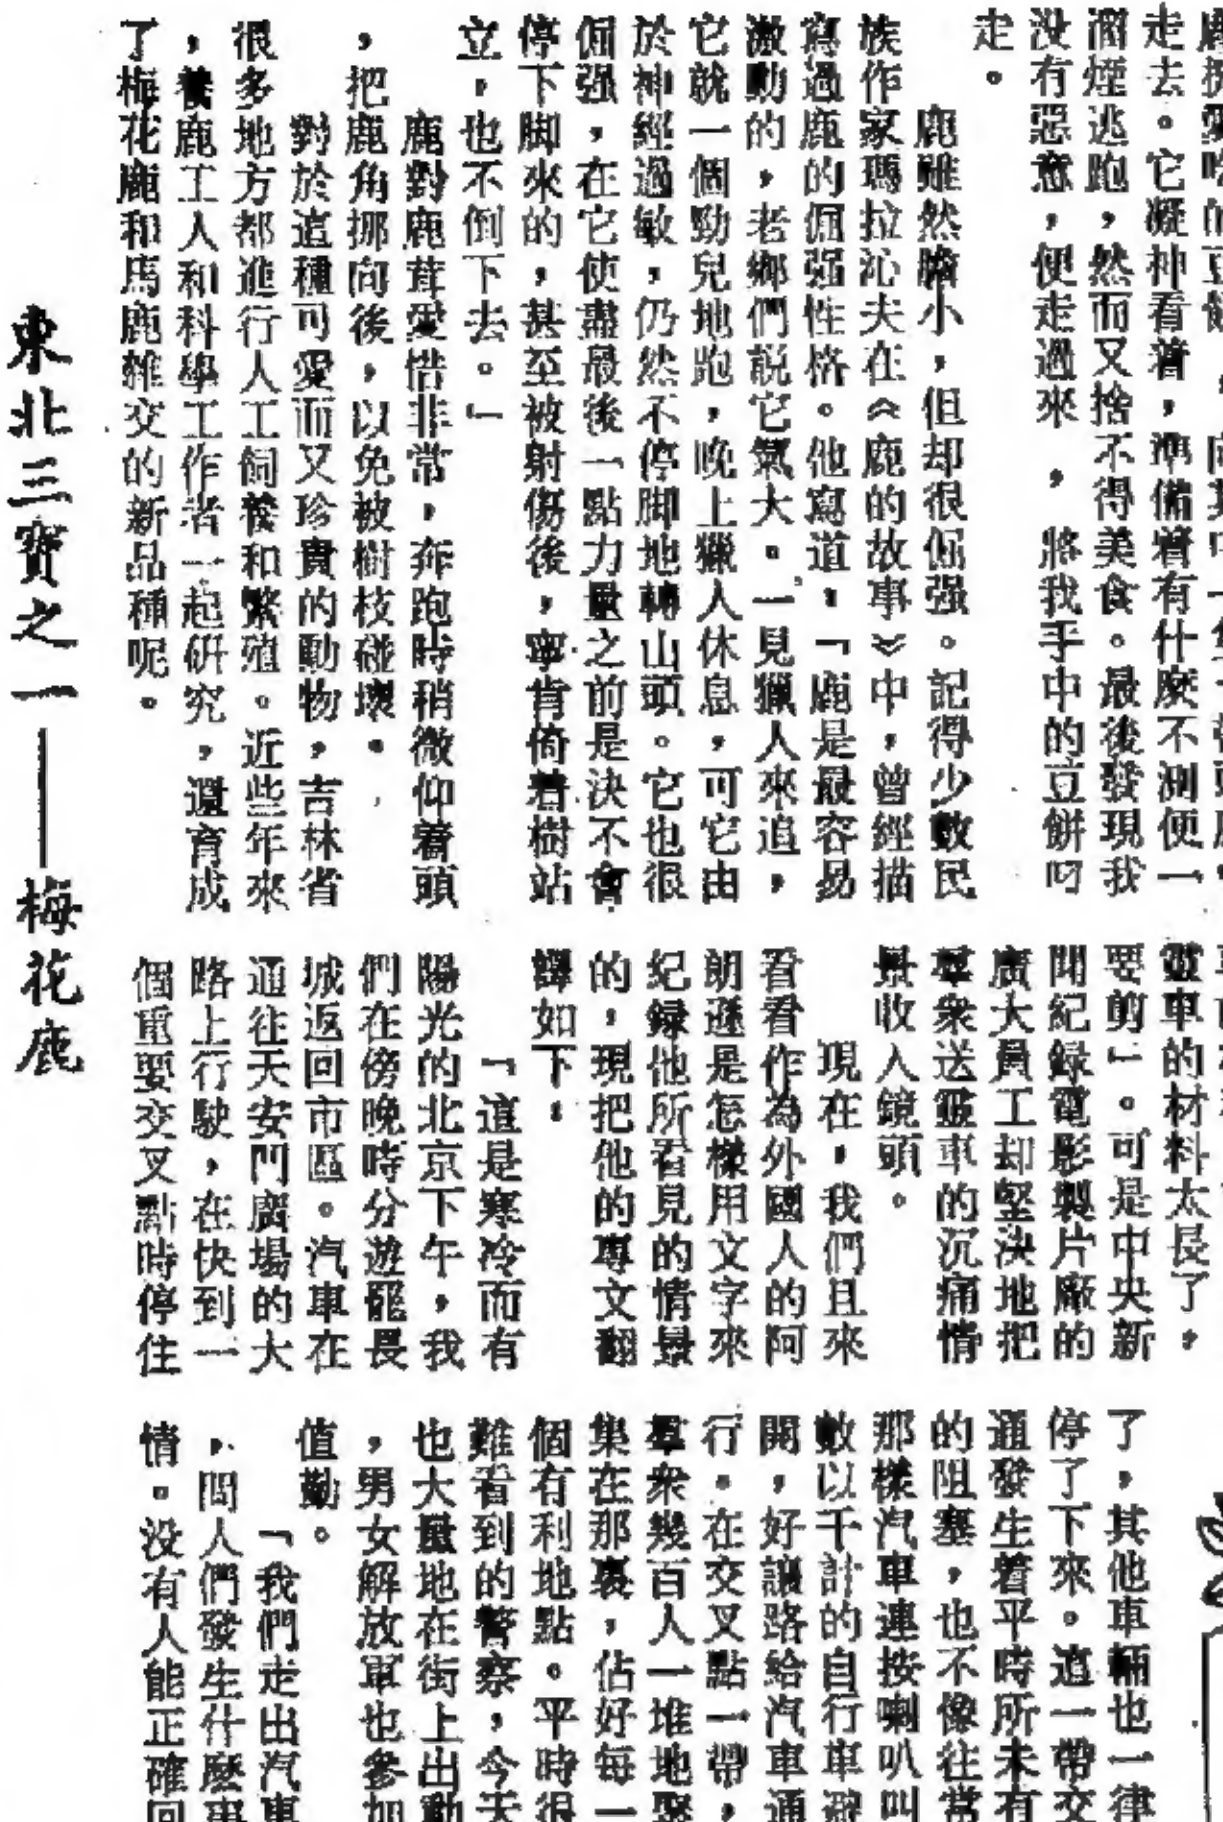 走去。它凝神看着，準備着有什麽不測便一
溜煙逃跑，然而又捨不得美食。最後發現我
没有惡意，便走過來，將我手中的豆餅叼
走。
鹿雖然膽小，但却很倔强。記得少數民
族作家瑪拉沁夫在《鹿的故事》中，曾經描
寫過鹿的倔强性格。他寫道：「鹿是最容易
激動的，老鄉們説它氣大。一見獵人來追，
它就一個勁兒地跑，晚上獵人休息，可它由
於神經過敏，仍然不停脚地轉山頭。它也很
倔强，在它使盡最後一點力量之前是決不會
停下脚來的，甚至被射傷後，寧肯倚着樹站
立，也不倒下去。」
鹿對鹿茸愛惜非常，奔跑時稍微仰着頭
，把鹿角挪向後，以免被樹枝碰壞。
對於這種可愛而又珍貴的動物，吉林省
很多地方都進行人工飼養和繁殖。近些年來
，養鹿工人和科學工作者一起研究，還育成
了梅花鹿和馬鹿雜交的新品種呢。
東北三寶之一——梅花鹿
靈車的材料太長了，
要剪」。可是中央新
聞紀録電影製片廠的
廣大員工却堅決地把
羣衆送靈車的沉痛情
景收入鏡頭。
現在，我們且來
看看作為外國人的阿
朗遜是怎樣用文字來
紀録他所看見的情景
的，現把他的專文翻
譯如下：
「這是寒冷而有
陽光的北京下午，我
們在傍晚時分遊罷長
城返回市區。汽車在
通往天安門廣場的大
路上行駛，在快到一
個重要交叉點時停住
了，其他車輛也一律
停了下來。這一帶交
通發生着平時所未有
的阻塞，也不像往常
那樣汽車連按喇叭叫
數以千計的自行車避
開，好讓路給汽車通
行。在交叉點一帶，
羣衆幾百人一堆地聚
集在那裏，佔好每一
個有利地點。平時很
難看到的警察，今天
也大量地在街上出動
，男女解放軍也參加
值勤。
「我們走出汽車
，問人們發生什麽事
情。没有人能正確回